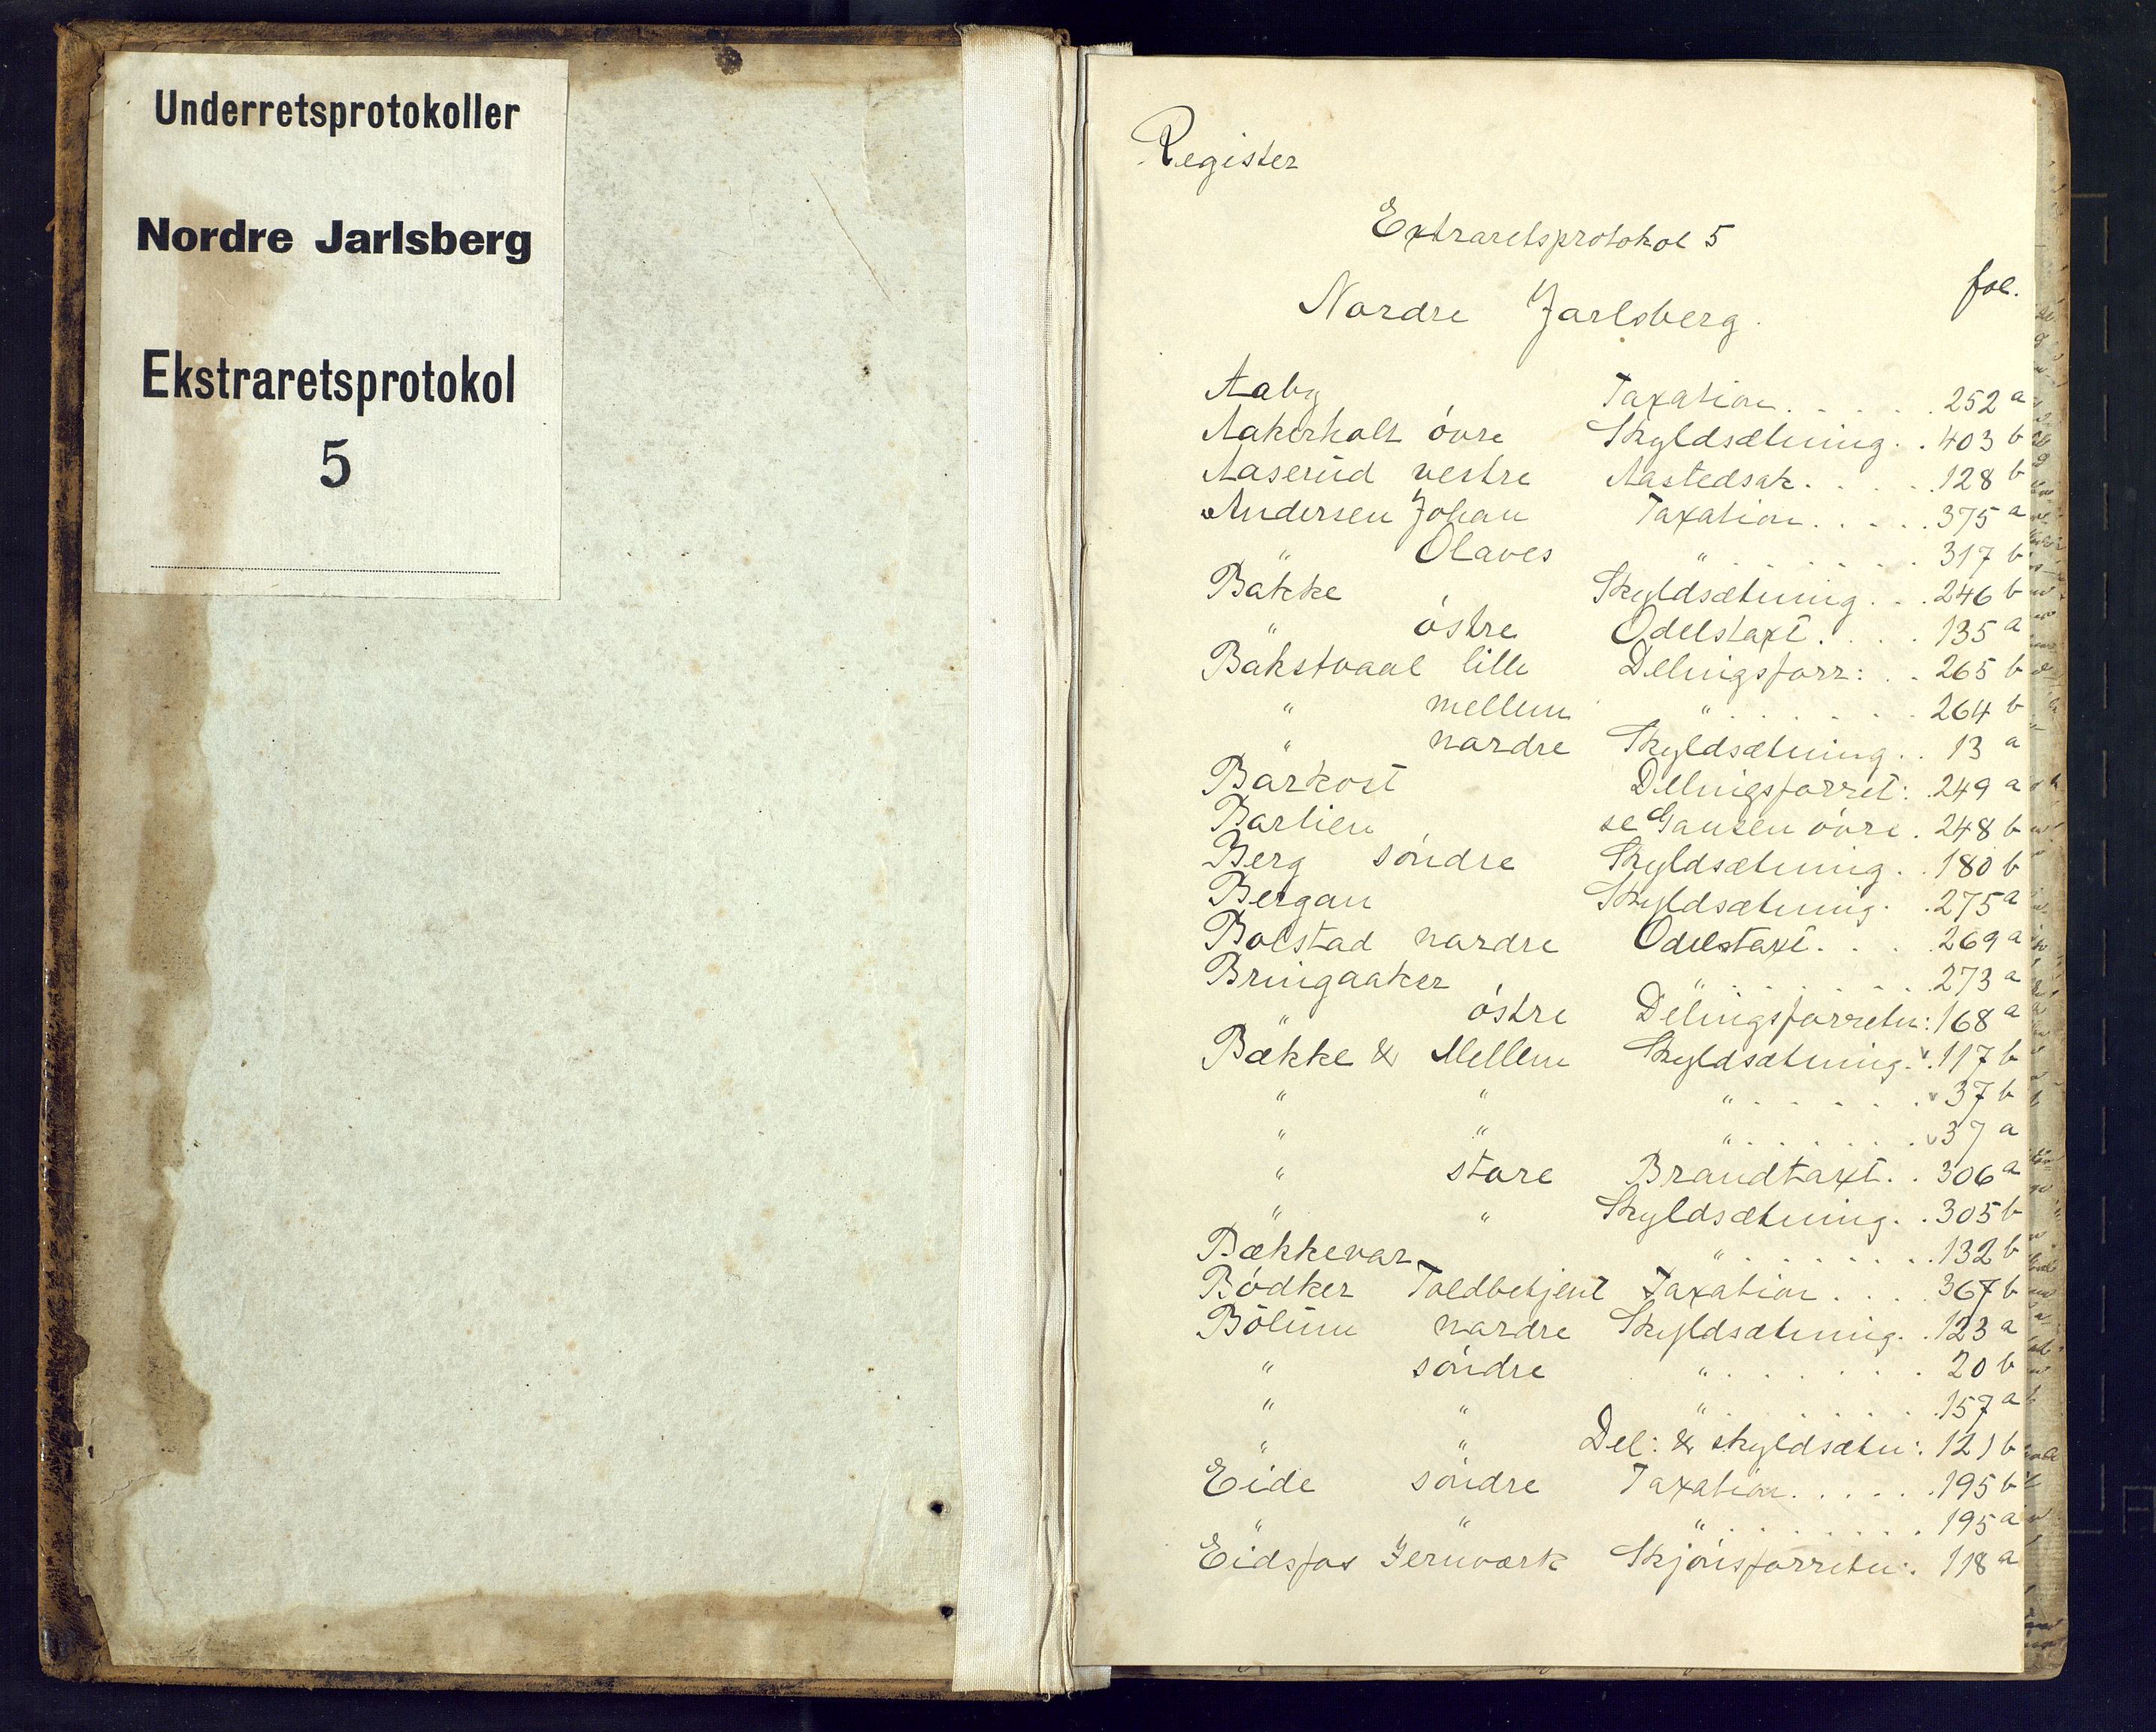 Underretsprotokoller
Nordre Jarlsberg
Ekstraretsprotokol
5
Register
Extraretsprotokol 5
Nordre Jarlsberg.
fol.
Aaby Taxation. . . . . 252 a
Aakerholt óvre Skyldsætning. . 403 b
Aaserud vestre Aastedsak. . . . 128 b
Andersen Johan Taxation. . . . 375 a
" Olaves " . . . . . . 317 b
Bakke Skyldsætning. . . 246 b
" óstre Odelstaxt. . . . 135 a
Bakstvaal lille Delingsforr: . . 265 b
" mellem " . . . . . . 264 b
" nordre Skyldsætning. . 13 a
Barkost Delingsforret: . 249 a
Barlien se Gausen óvre . 248 b
Berg sóndre Skyldsætning. . 180 b
Bergan Skyldsætning. . 275 a
Bolstad nordre Odelstaxt. . . 269 a
Bringaaker " . . . . . . 273 a
" óstre Delingsforretn: 168 a
Bække & Mellem Skyldsætning. v. 117 b
" " " . . . . . . v 37 b
" " " . . . . . . v 37 a
" store Brandtaxt. . 306 a
" " Skyldsætning. . 305 b
Bækkevar " . . . . . . 132 b
Bödker Toldbetjent Taxation . . . 367 b
Bölum nordre Skyldsætning. . 123 a
" sóndre " . . . . . . 20 b
" " " . . . . . . 157 a
" " Del: & skyldsætn: 121 b
Eide sóndre Taxation. . . . . 195 b
" " " . . . . . . 195 a
Eidsfos Jernværk Skjónsforretn: 118 a